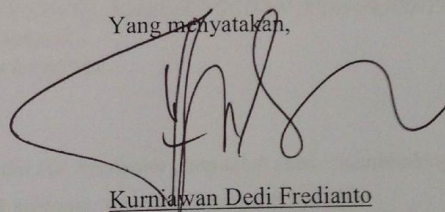 Yang menyatakan,
Kurniawan Dedi Fredianto